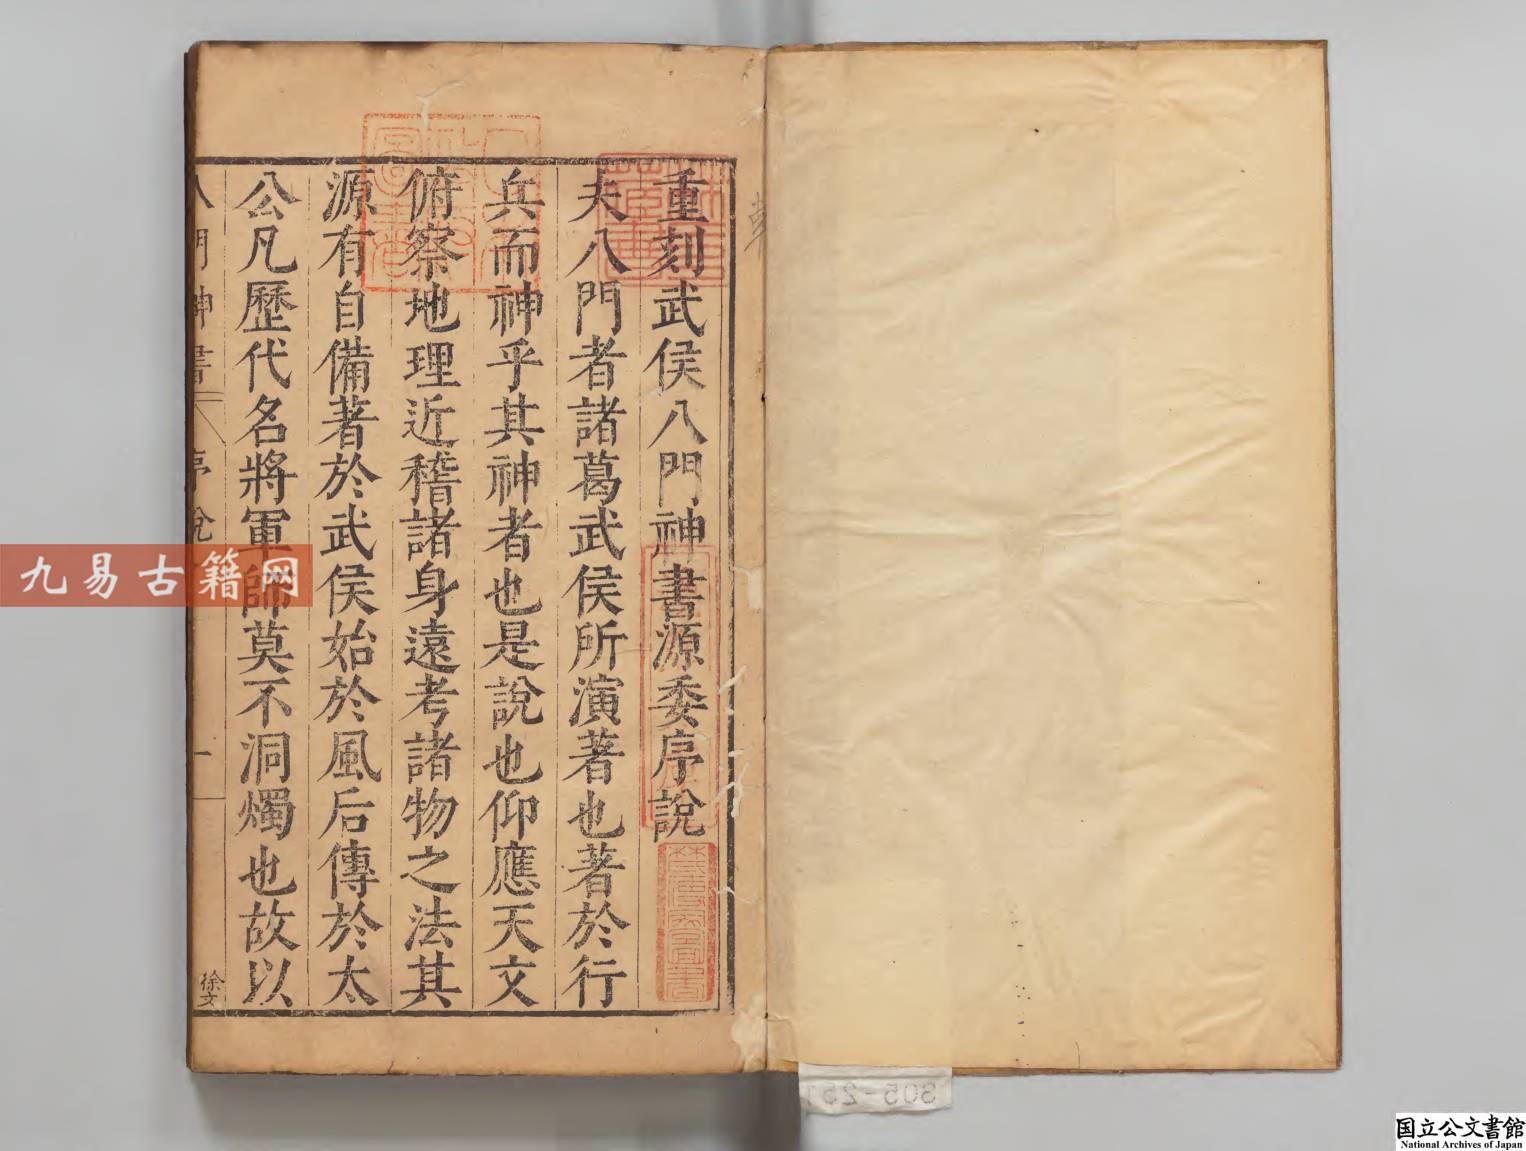 重刻武侯八門神書源委序說
夫八門者諸葛武侯所演著也著於行
兵而神乎其神者也是說也仰應天文
俯察地理近稽諸身遠考諸物之法其
源有自備著於武侯始於風后傳於太
公凡歷代名將軍師莫不洞燭也故以
八門神書 序說 一 徐文
九易古籍网
305-251
国立公文書館
National Archives of Japan